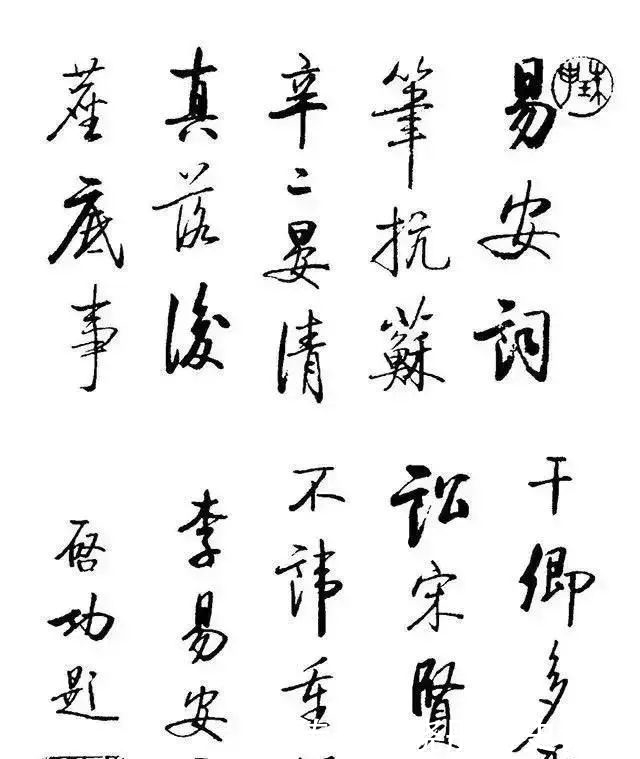 珠申
易安詞
筆抗蘇
辛二晏清
真落後
塵底事
干卿多
訟宋賢
不諱重
李易安
啓功題